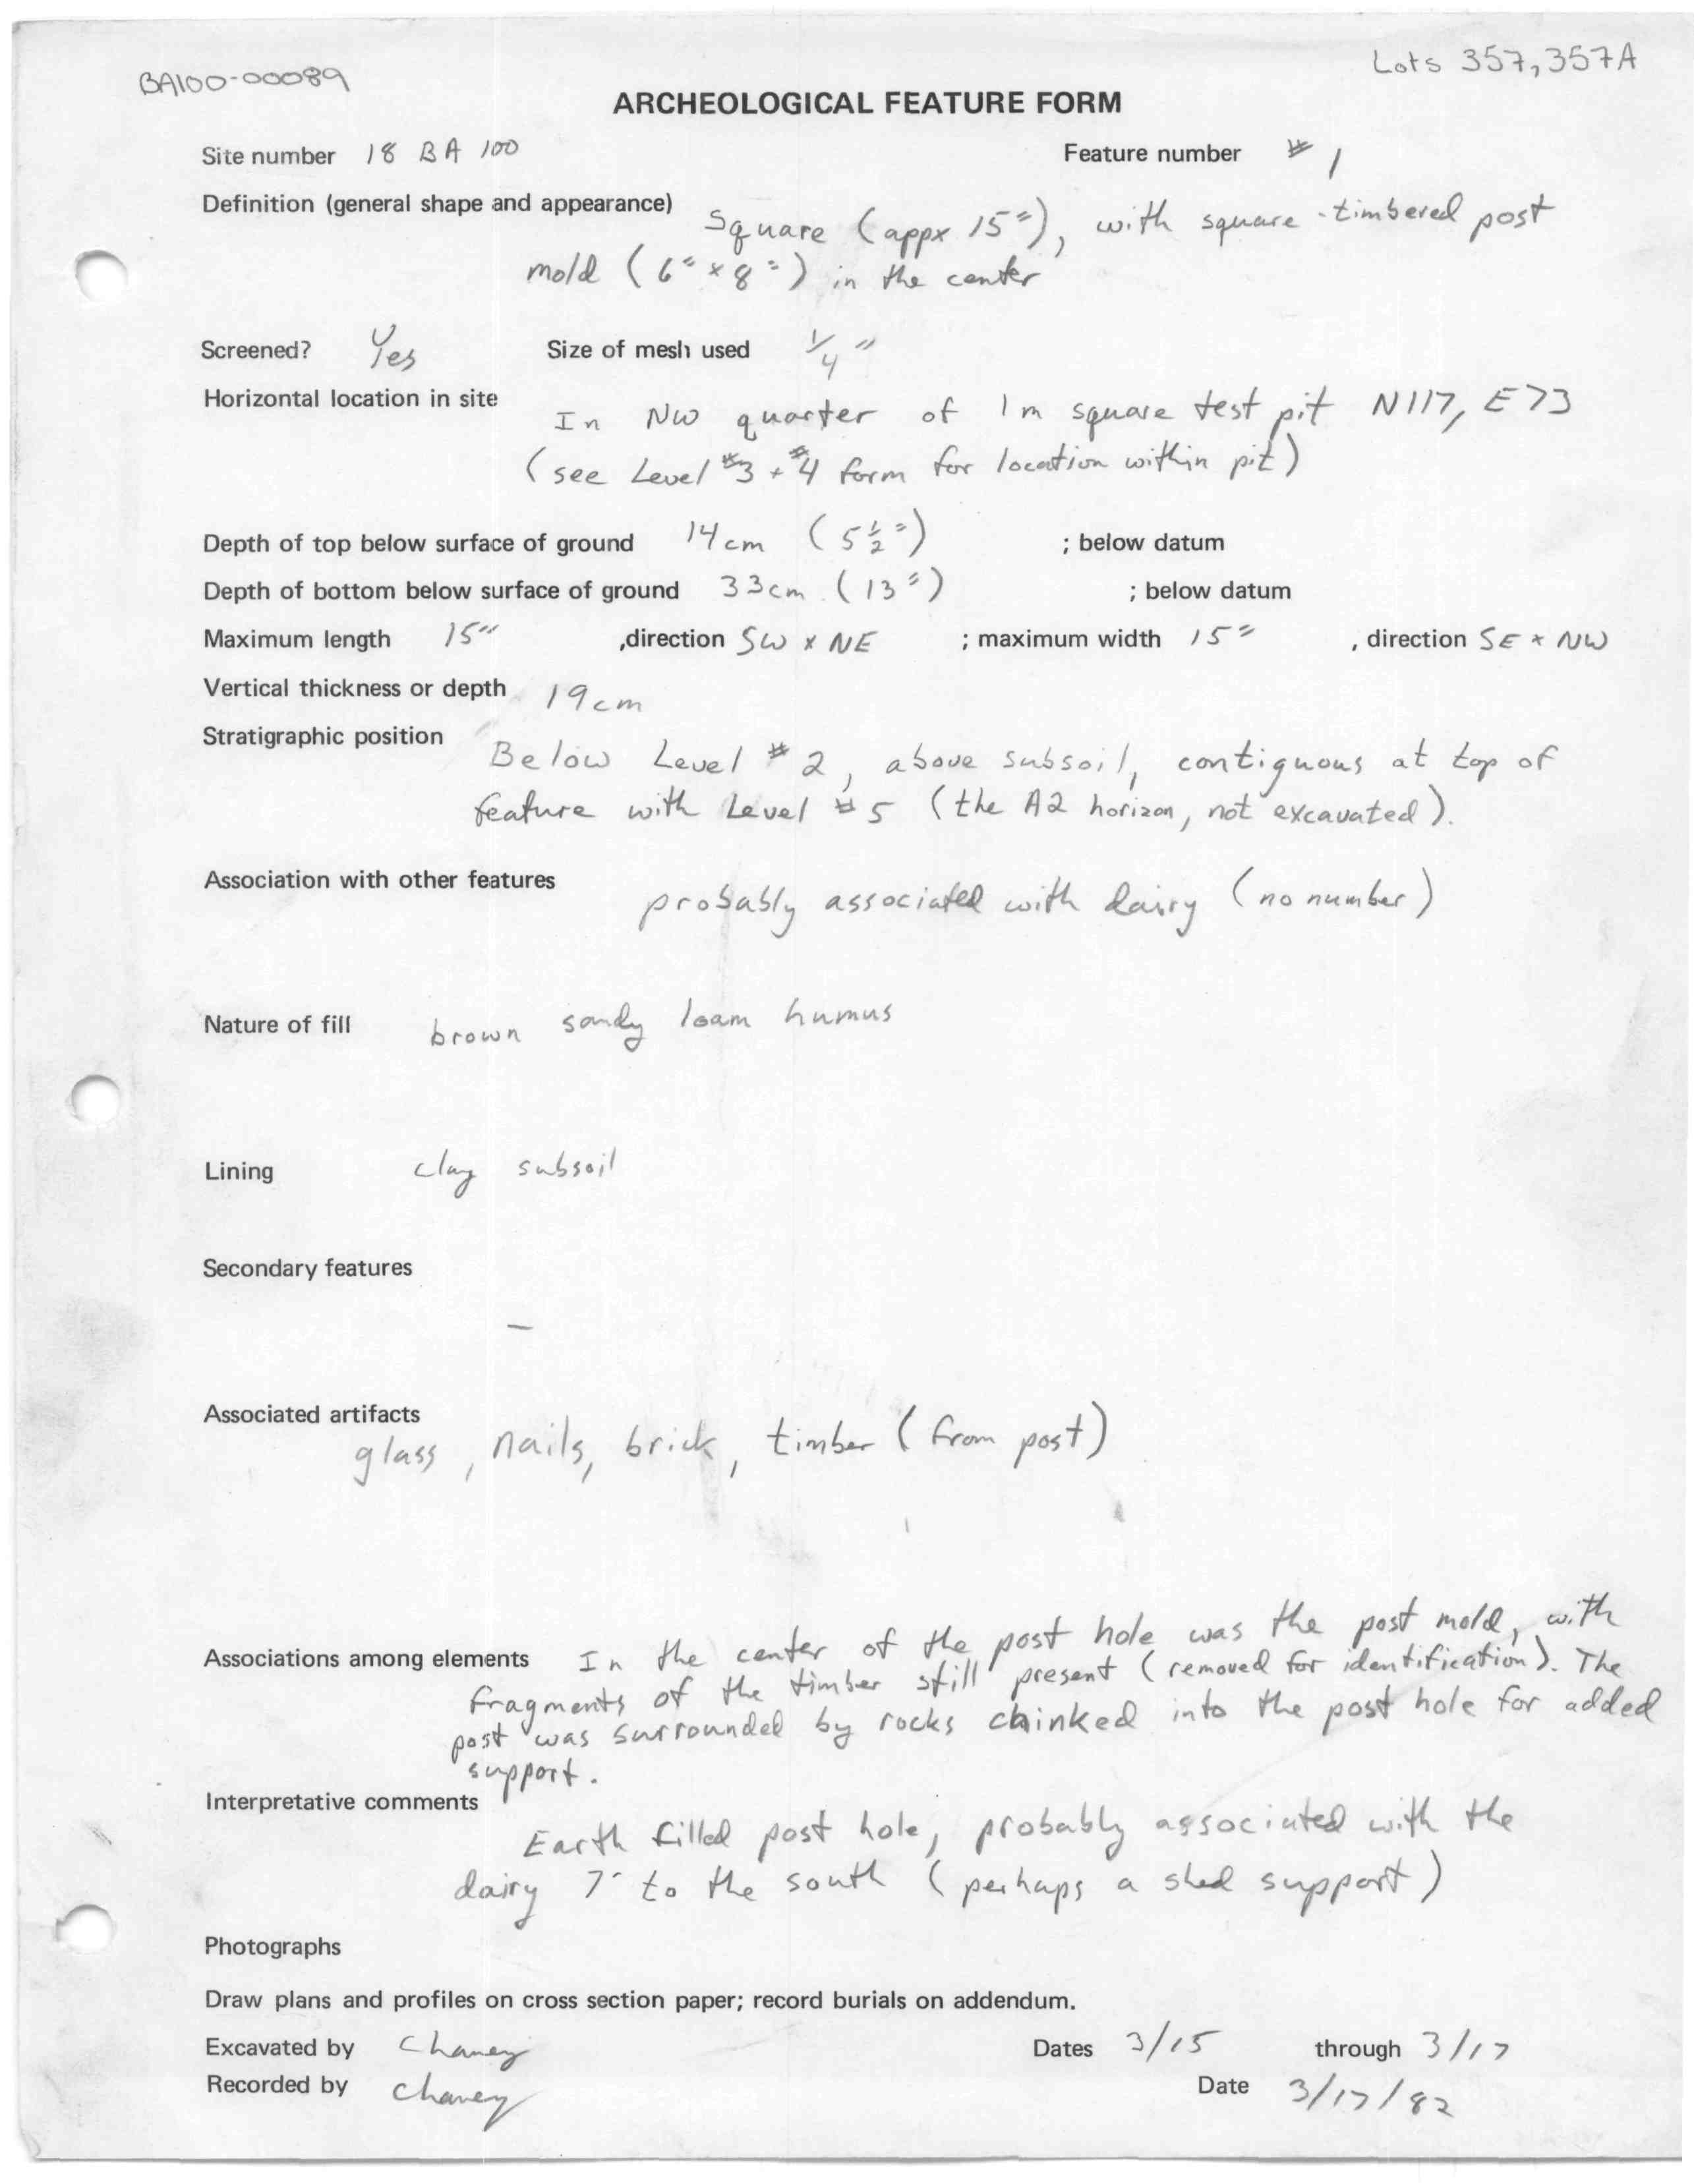 BA100-00089
Lots 357, 357A
ARCHEOLOGICAL FEATURE FORM
Site number 18 BA 100 Feature number # 1
Definition (general shape and appearance) Square (appx 15"), with square-timbered post
mold (6" x 8") in the center
Screened? Yes Size of mesh used 1/4"
Horizontal location in site In NW quarter of 1m square test pit N117, E73
(see Level #3 + #4 form for location within pit)
Depth of top below surface of ground 14cm (5 1/2") ; below datum
Depth of bottom below surface of ground 33cm. (13") ; below datum
Maximum length 15" ,direction SW x NE ; maximum width 15" , direction SE x NW
Vertical thickness or depth 19cm
Stratigraphic position Below Level #2, above subsoil, contiguous at top of
feature with Level #5 (the A2 horizon, not excavated).
Association with other features probably associated with dairy (no number)
Nature of fill brown sandy loam humus
Lining clay subsoil
Secondary features
—
Associated artifacts
glass, nails, brick, timber (from post)
Associations among elements In the center of the post hole was the post mold, with
fragments of the timber still present (removed for identification). The
post was surrounded by rocks chinked into the post hole for added
support.
Interpretative comments
Earth filled post hole, probably associated with the
dairy 7' to the south (perhaps a shed support)
Photographs
Draw plans and profiles on cross section paper; record burials on addendum.
Excavated by Chaney Dates 3/15 through 3/17
Recorded by Chaney Date 3/17/82